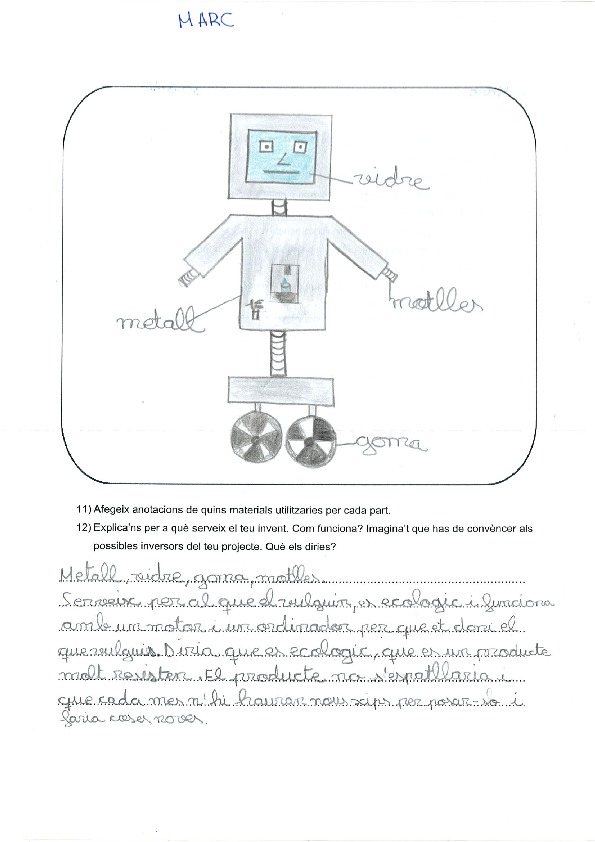 MARC
vidre
motlles
metall
1€
goma
11) Afegeix anotacions de quins materials utilitzaries per cada part.
12) Explica'ns per a què serveix el teu invent. Com funciona? Imagina't que has de convèncer als
possibles inversors del teu projecte. Què els diries?
Metall, vidre, goma, motlles.
Serveix per al que el vulguin, es ecologic i funciona
amb un motor i un ordinador per que et doni el
que vulguis. Diria que es ecologic, que es un producte
molt resisten. El producte no s'espatllaria i
que cada mes n'hi hauran nous xips per posar-lo i
faria coses noves.